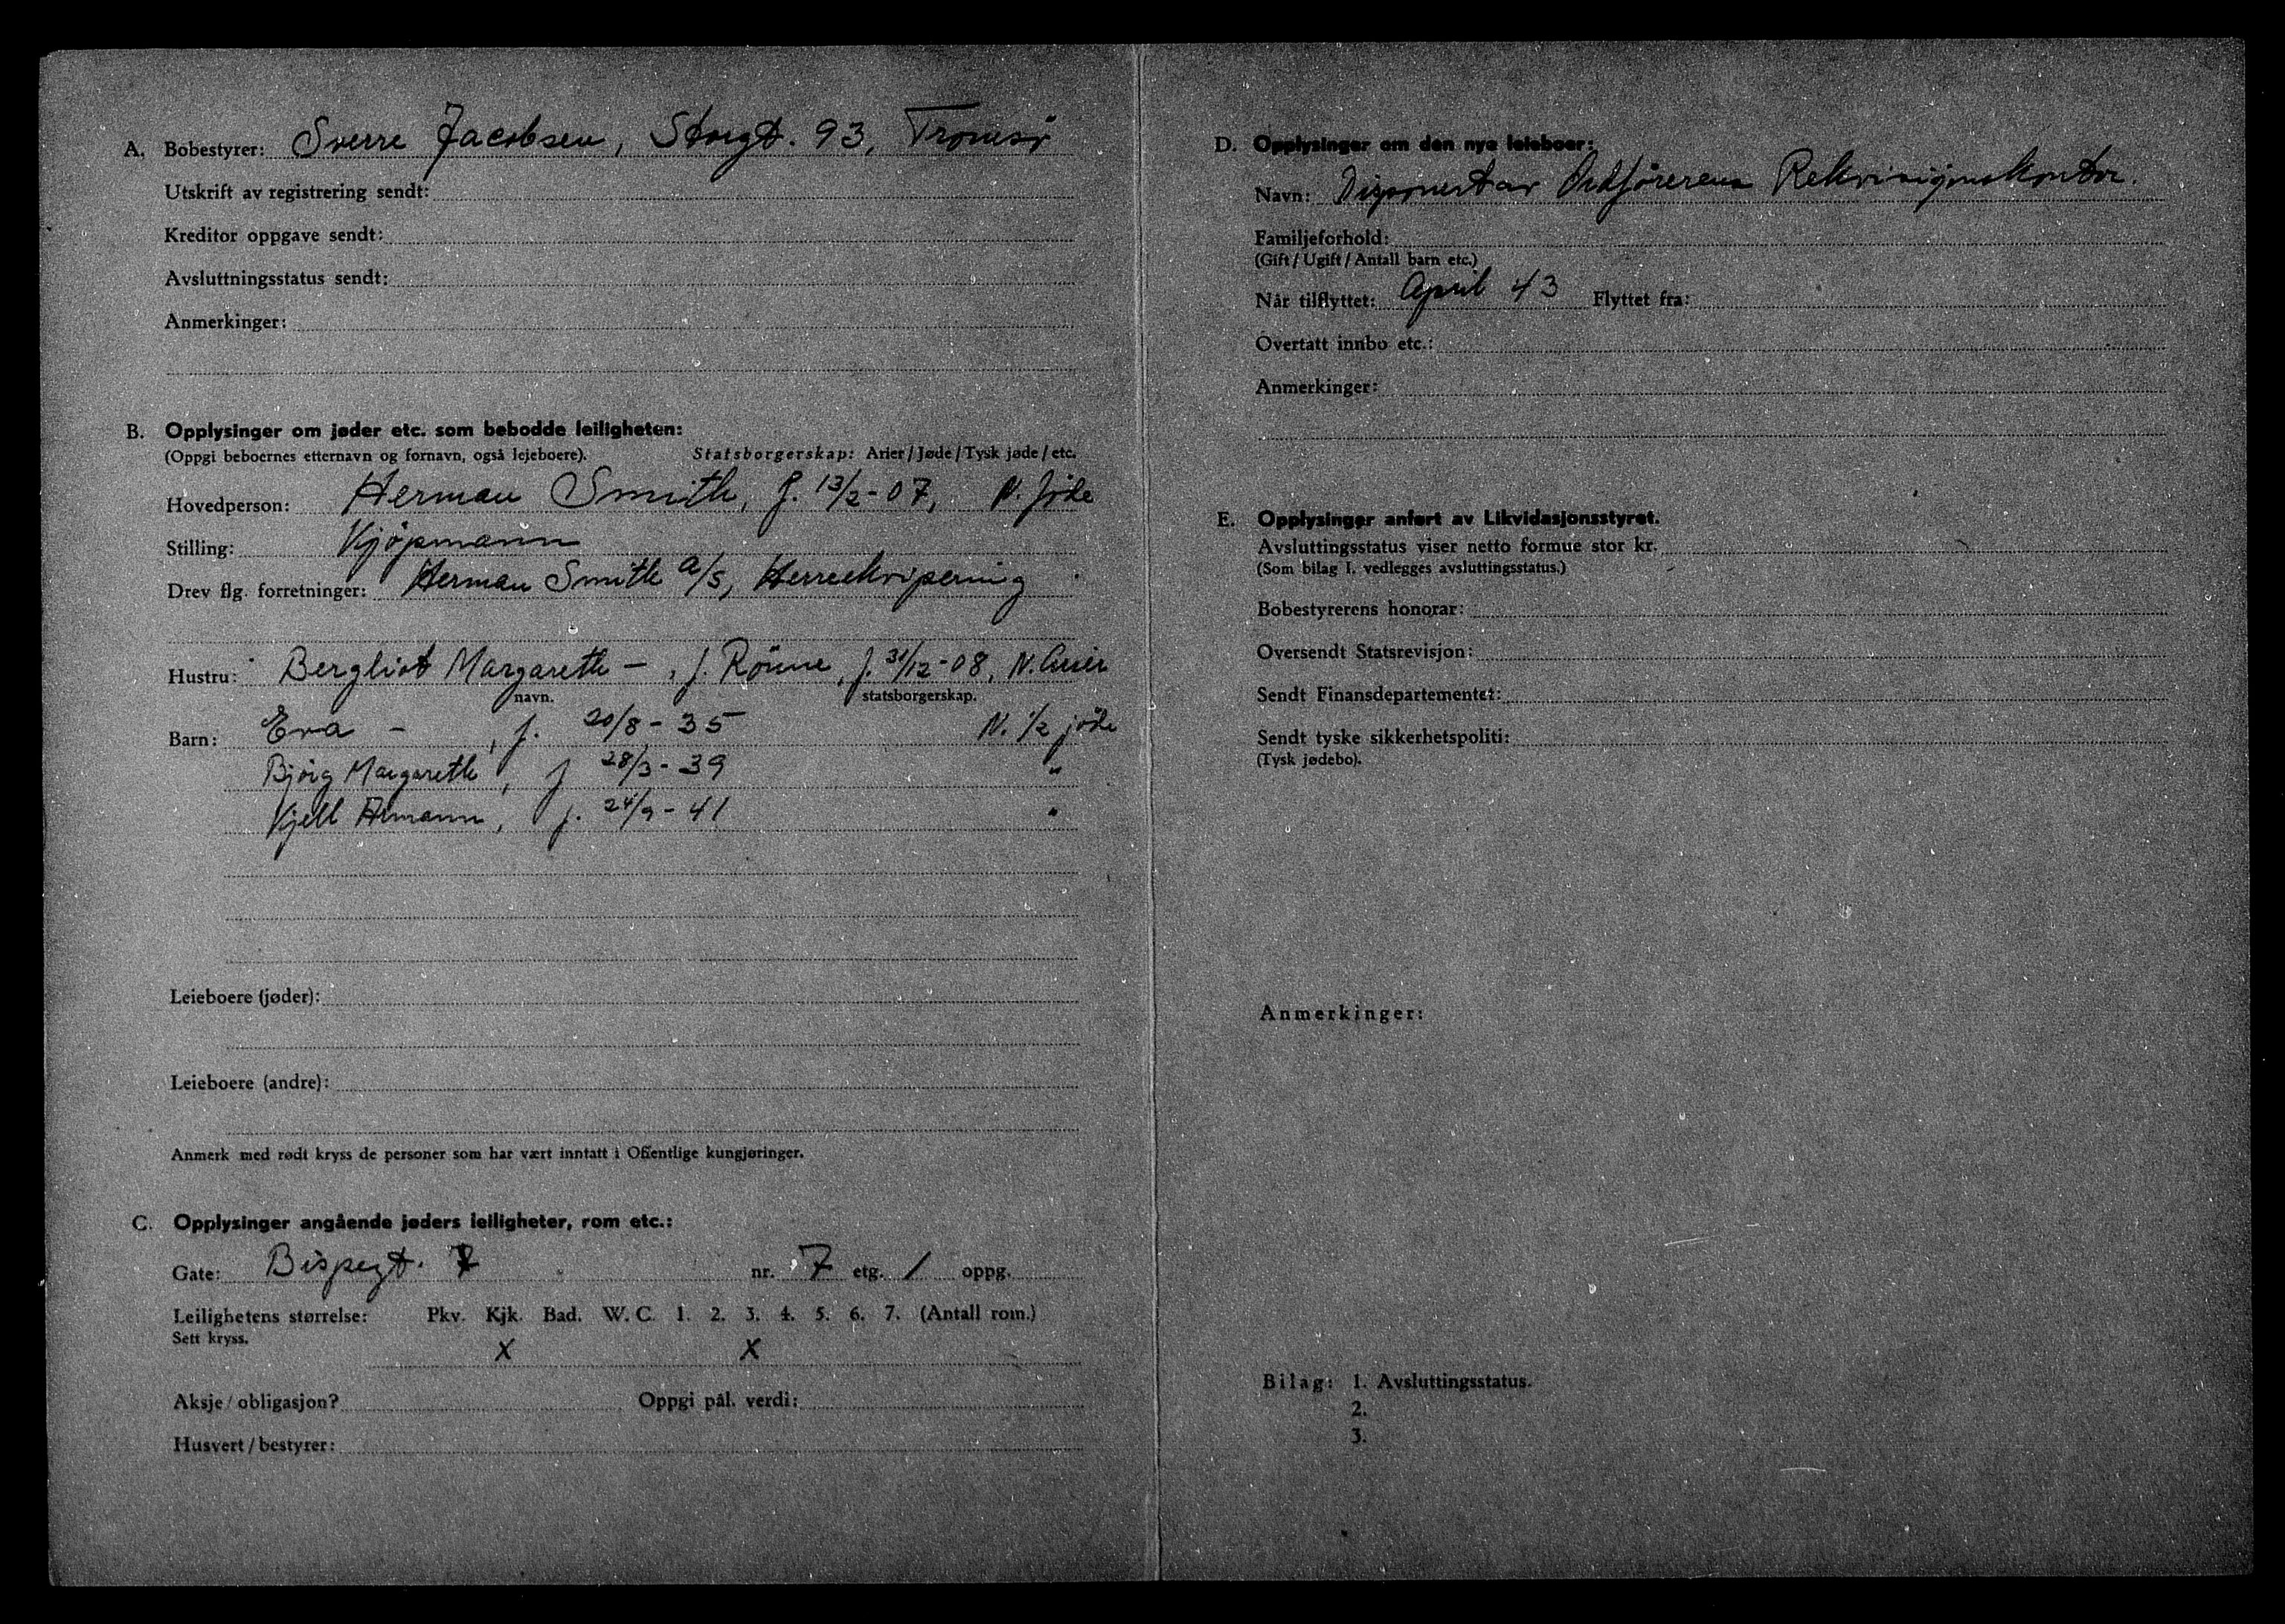 A. Bobestyrer: Sverre Jacobsen, Storgt. 93, Tromsö
Utskrift av registrering sendt:
Kreditor oppgave sendt:
Avsluttningsstatus sendt:
Anmerkinger:
B. Opplysinger om jøder etc. som bebodde leiligheten:
(Oppgi beboernes etternavn og fornavn, også lejeboere). Statsborgerskap: Arier / Jøde / Tysk jøde / etc.
Hovedperson: Herman Smith, f. 13/2-07, N. jöde
Stilling: Kjöpmann
Drev flg. forretninger: Herman Smith a/s, Herreekvipering
Hustru: Bergliot Margareth —, f. Rönne, f. 31/12-08, N. Arier
navn. statsborgerskap.
Barn: Eva — , f. 20/8-35 N. 1/2 jöde
Bjørg Margareth, f 28/3-39 "
Kjell Armann, f. 24/9-41 "
Leieboere (jøder):
Leieboere (andre):
Anmerk med rødt kryss de personer som har vært inntatt i Offentlige kungjøringer.
C. Opplysinger angående jøders leiligheter, rom etc.:
Gate: Bispegt. 7 nr. 7 etg. 1 oppg.
Leilighetens størrelse: Pkv. Kjk. Bad. W. C. 1. 2. 3. 4. 5. 6. 7. (Antall rom.)
Sett kryss.
X X
Aksje / obligasjon? Oppgi pål. verdi:
Husvert / bestyrer:
D. Opplysinger om den nye leieboer:
Navn: Disponert av Ordförerens Rekvisisjonskontor.
Familjeforhold:
(Gift / Ugift / Antall barn etc.)
Når tilflyttet: April 43 Flyttet fra:
Overtatt innbo etc.:
Anmerkinger:
E. Opplysinger anført av Likvidasjonsstyret.
Avsluttingsstatus viser netto formue stor kr.
(Som bilag I. vedlegges avsluttingsstatus.)
Bobestyrerens honorar:
Oversendt Statsrevisjon:
Sendt Finansdepartementet:
Sendt tyske sikkerhetspoliti:
(Tysk jødebo).
Anmerkinger:
Bilag: 1. Avsluttingsstatus.
2.
3.